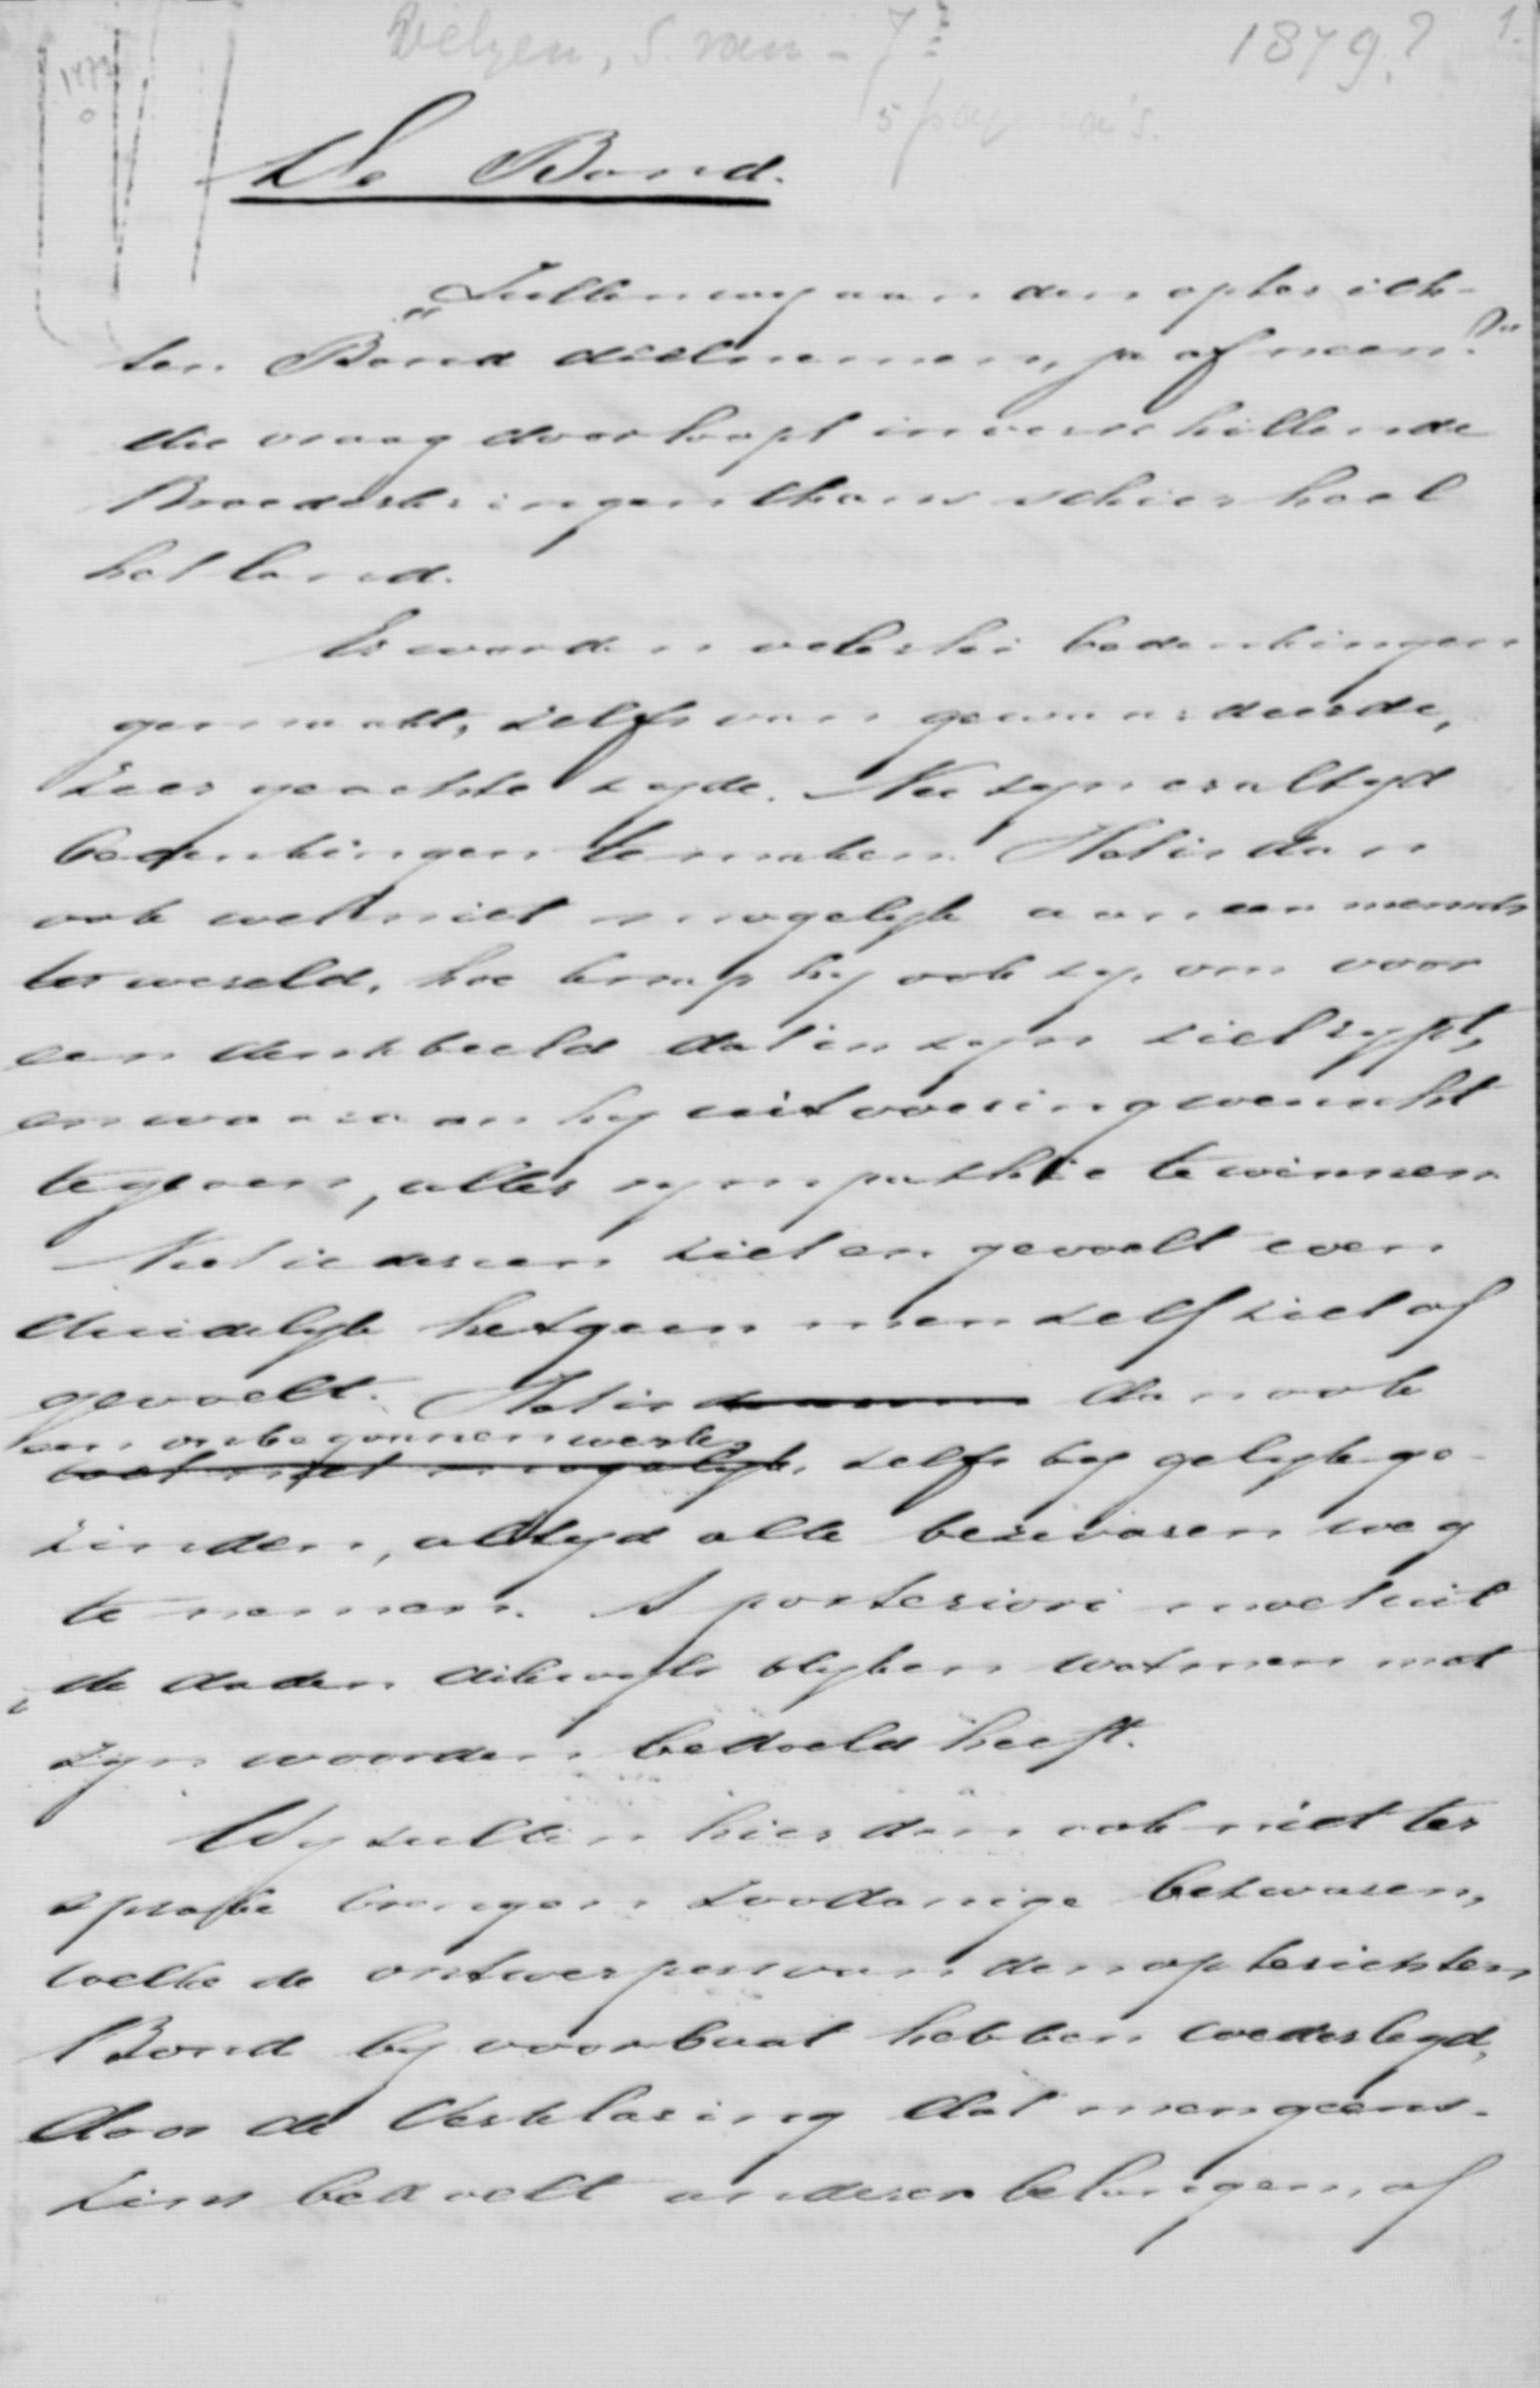 Velzen, S. van - 7 1879? 1.
5 pag
De Bond.
„Zullen wij aan den opterich-
ten Bond deelnemen, ja of neen?"
die vraag doorloopt in verschillende
Broederkringen thans schier heel
het land.
Er worden velerlei bedenkingen
gemaakt, zelfs van gewaardeerde,
zeer geachte zijde. Nu zijn er altijd
bedenkingen te maken. Het is dan
ook wel niet mogelijk aan een mensch
ter wereld, hoe knap hij ook zij, om voor
een denkbeeld dat in zijn ziel rijpt,
en waaraan hij uitvoering wenscht
te geven, aller sympathie te winnen.
Niet iedereen ziet en gevoelt even
duidelijk hetgeen men zelf ziet of
gevoelt. Het is dan ook
een onbegonnen werk,
wel niet mogelijk, zelfs bij gelijkge-
zinden, altijd alle bezwaren weg
te nemen. A posteriori moet uit
de daden dikwijls blijken wat men met
zijn woorden bedoeld heeft.
Wij zullen hier dan ook niet ter
sprake brengen zoodanige bezwaren,
welke de ontwerpers van den opterichten
Bond bij voorbaat hebben wederlegd,
door de verklaring dat men geens-
zins bedoelt anderer belangen, of